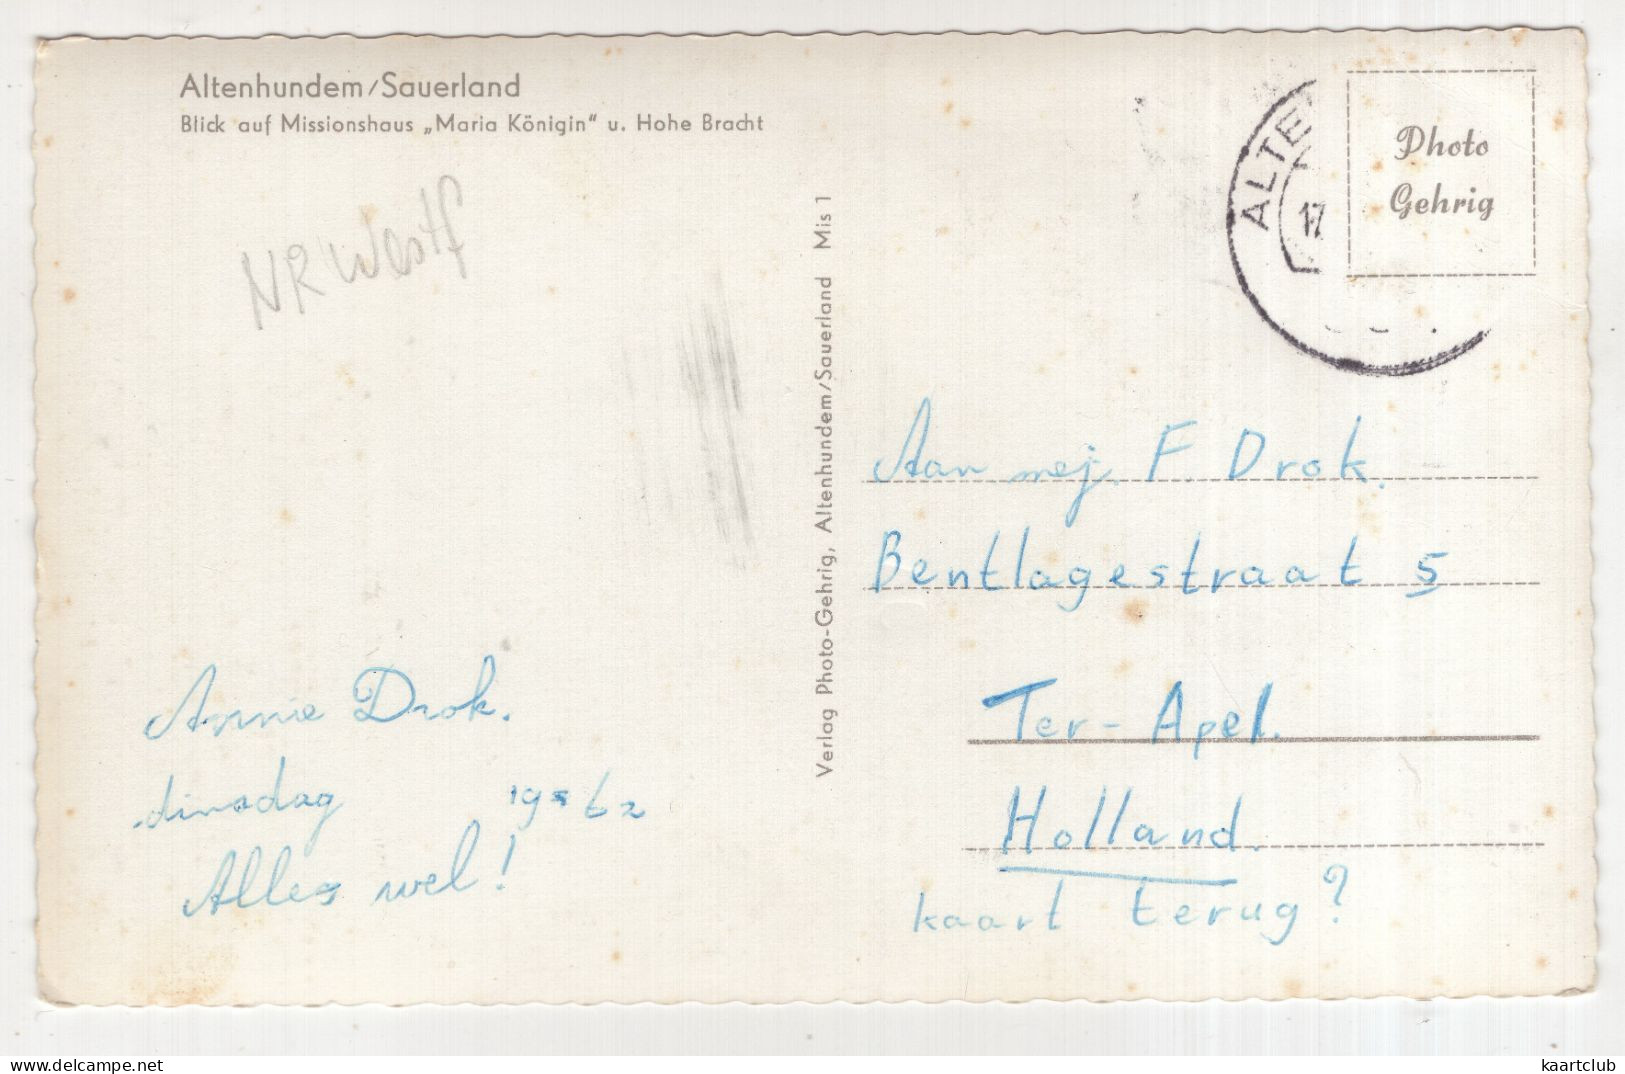 Altenhundem/Sauerland
Blick auf Missionshaus „Maria Königin“ u. Hohe Bracht
NRWestf
Annie Drok.
dinsdag 1962
Alles wel!
Verlag Photo-Gehrig, Altenhundem/Sauerland Mis 1
ALTE
17
Photo
Gehrig
Aan mej. F. Drok.
Bentlagestraat 5
Ter-Apel.
Holland.
kaart terug?
kaartclub